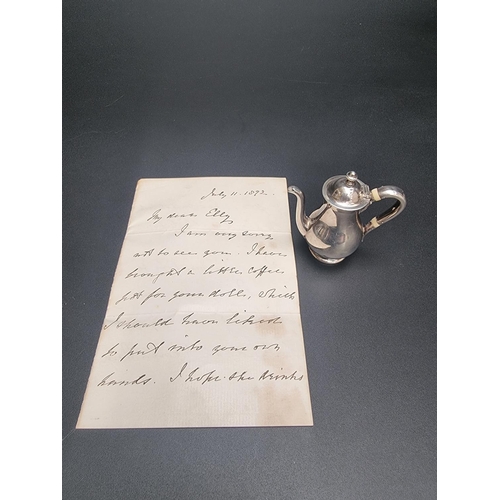 July 11. 1892.
My dear Elly
I am very sorry
not to see you. I have
brought a little coffee
pot for your doll, which
I should have liked
to put into your own
hands. I hope she drinks